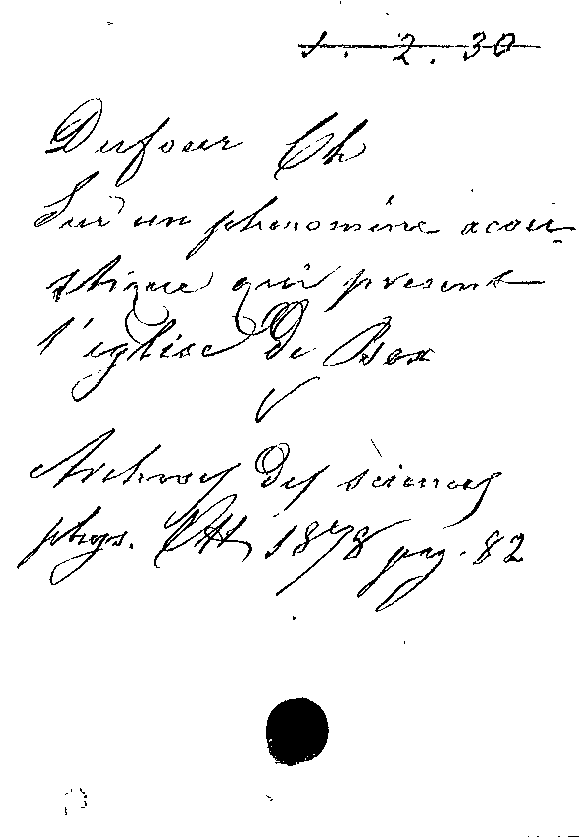 1. 2. 30
Dufour Ch
Sur un phenomène acou-
stique qui present
l'eglise de Bex
Archives des sciences
phys. 1878 pag. 82